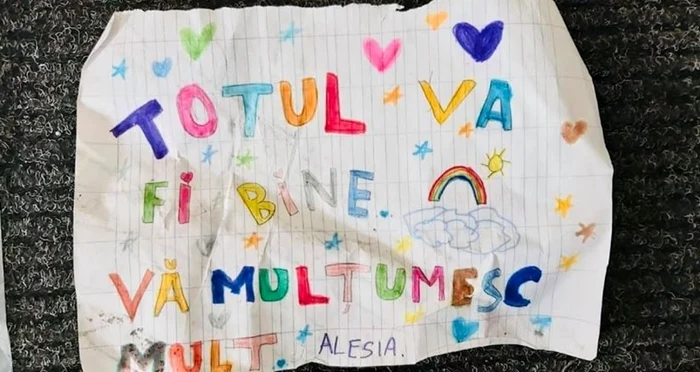 TOTUL VA
FI BINE.
VĂ MULȚUMESC
MULT. ALESIA.